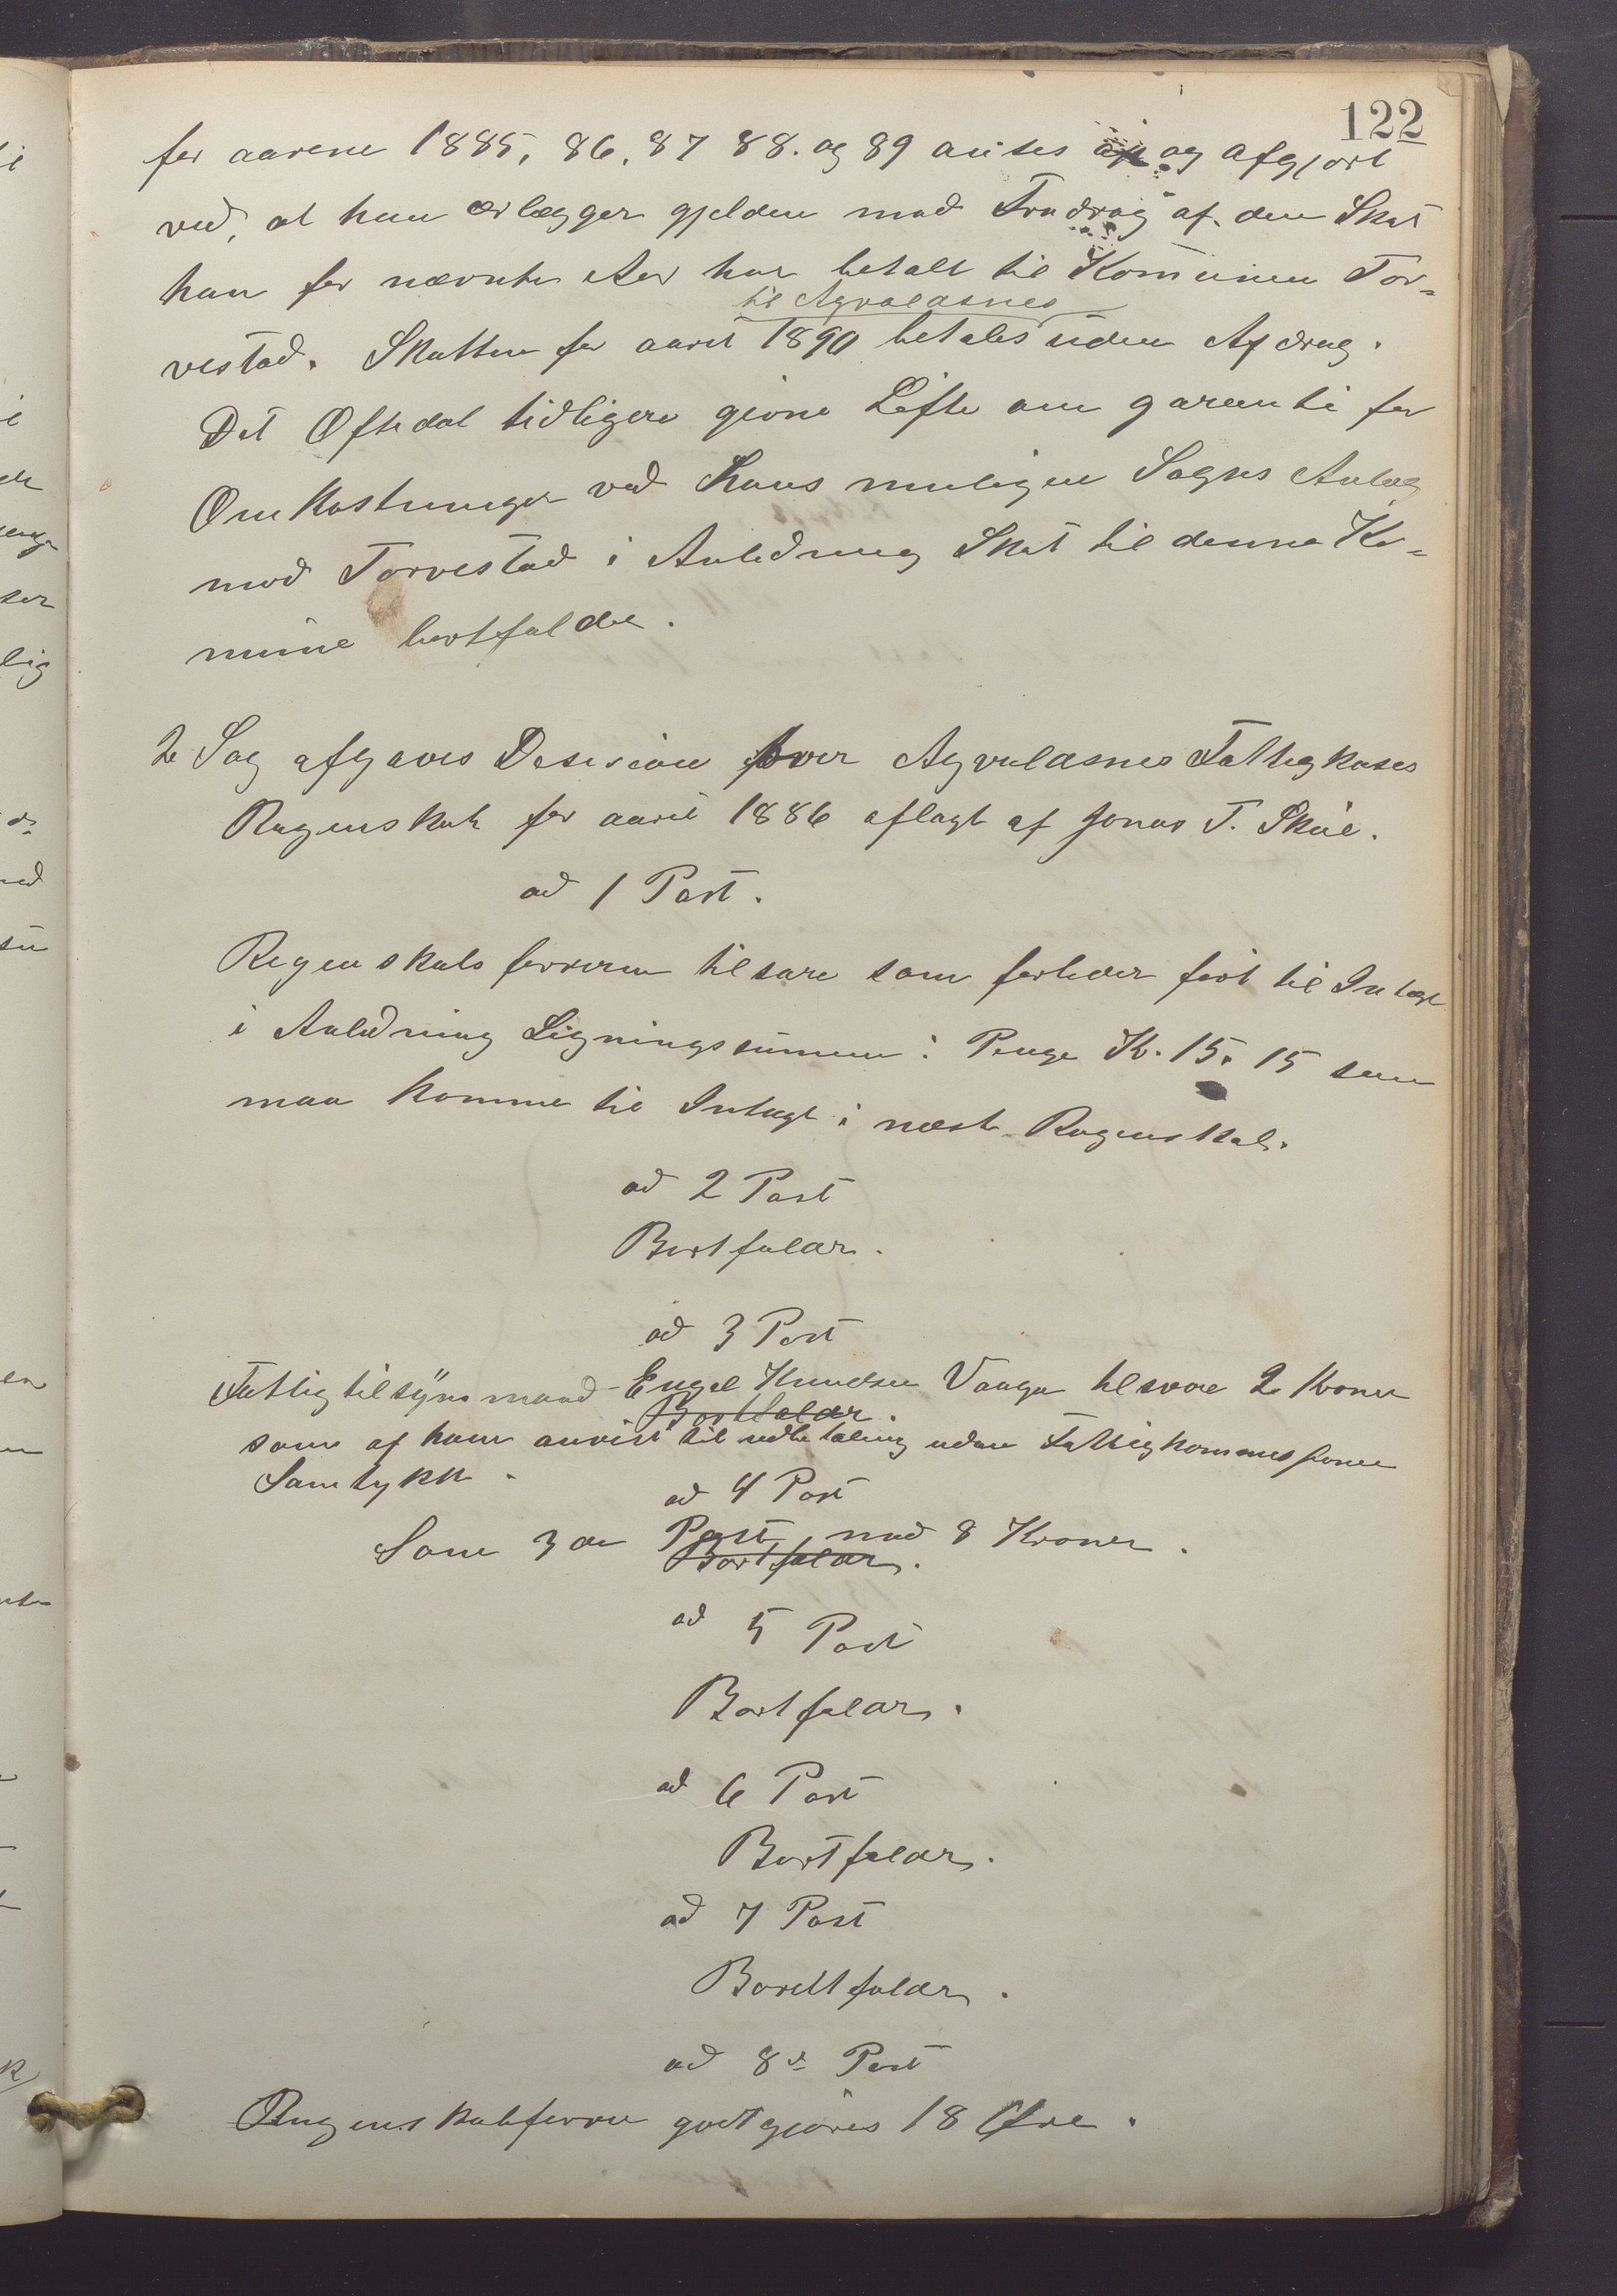 122
for aarene 1885, 86, 87 88. og 89 anses og afgjort
ved, at han erlægger gjelden med Fradrag af den Skat
han for nævnte Aar har betalt til Komunen Tor-
til Agvaldsnes
vestad. Skatten for aaret 1890 betales uden Afdrag.
Det Oftedal tidligere givne Løfte om garenti for
Omkostninger ved Hans muligen Sagns Anlæg
mod Torvestad i Anledning Skat til denne Ko-
mune bortfalder.
2 Sag afgaves Desision over Agvaldsnes Fattigkases
Regenskab for aaret 1886 aflagt af Jonas T. Skeie.
ad 1 Post.
Regenskabsføreren tilsvare som forlidet ført til Intægt
i Anledning Ligningssummen i Penge Kr. 15. 15 som
maa komme til Intægt i næste Regenskab.
ad 2 Post
Bortfalder.
ad 3 Post
Fattigtilsynsmand Engel Knudsen Vaage tilsvare 2 Kroner
Bortfalder.
som af ham anvist til udbetaling uden Fattigkommissionens
Samtykke.
ad 4 Post
Som 3de Post, med 8 Kroner.
Bortfalder.
ad 5 Post
Bortfalder.
ad 6 Post
Bortfalder.
ad 7 Post
Bordtfalder.
ad 8de Post
Regenskabsføren godtgjøres 18 Øre.